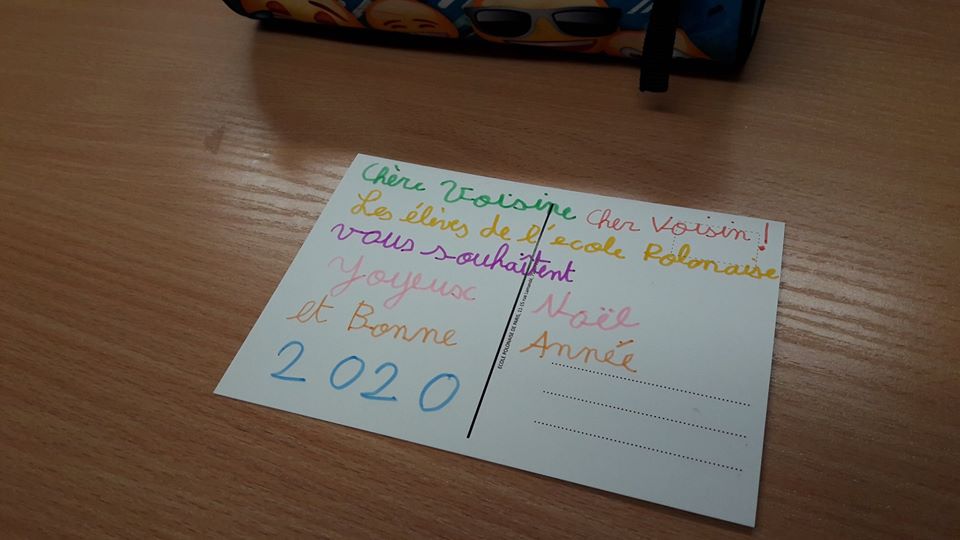 Chère Voisine Cher Voisin !
Les élèves de l'école Polonaise
vous souhaîtent
Joyeux Noël
et Bonne Année
2020
ECOLE POLONAISE DE PARIS,